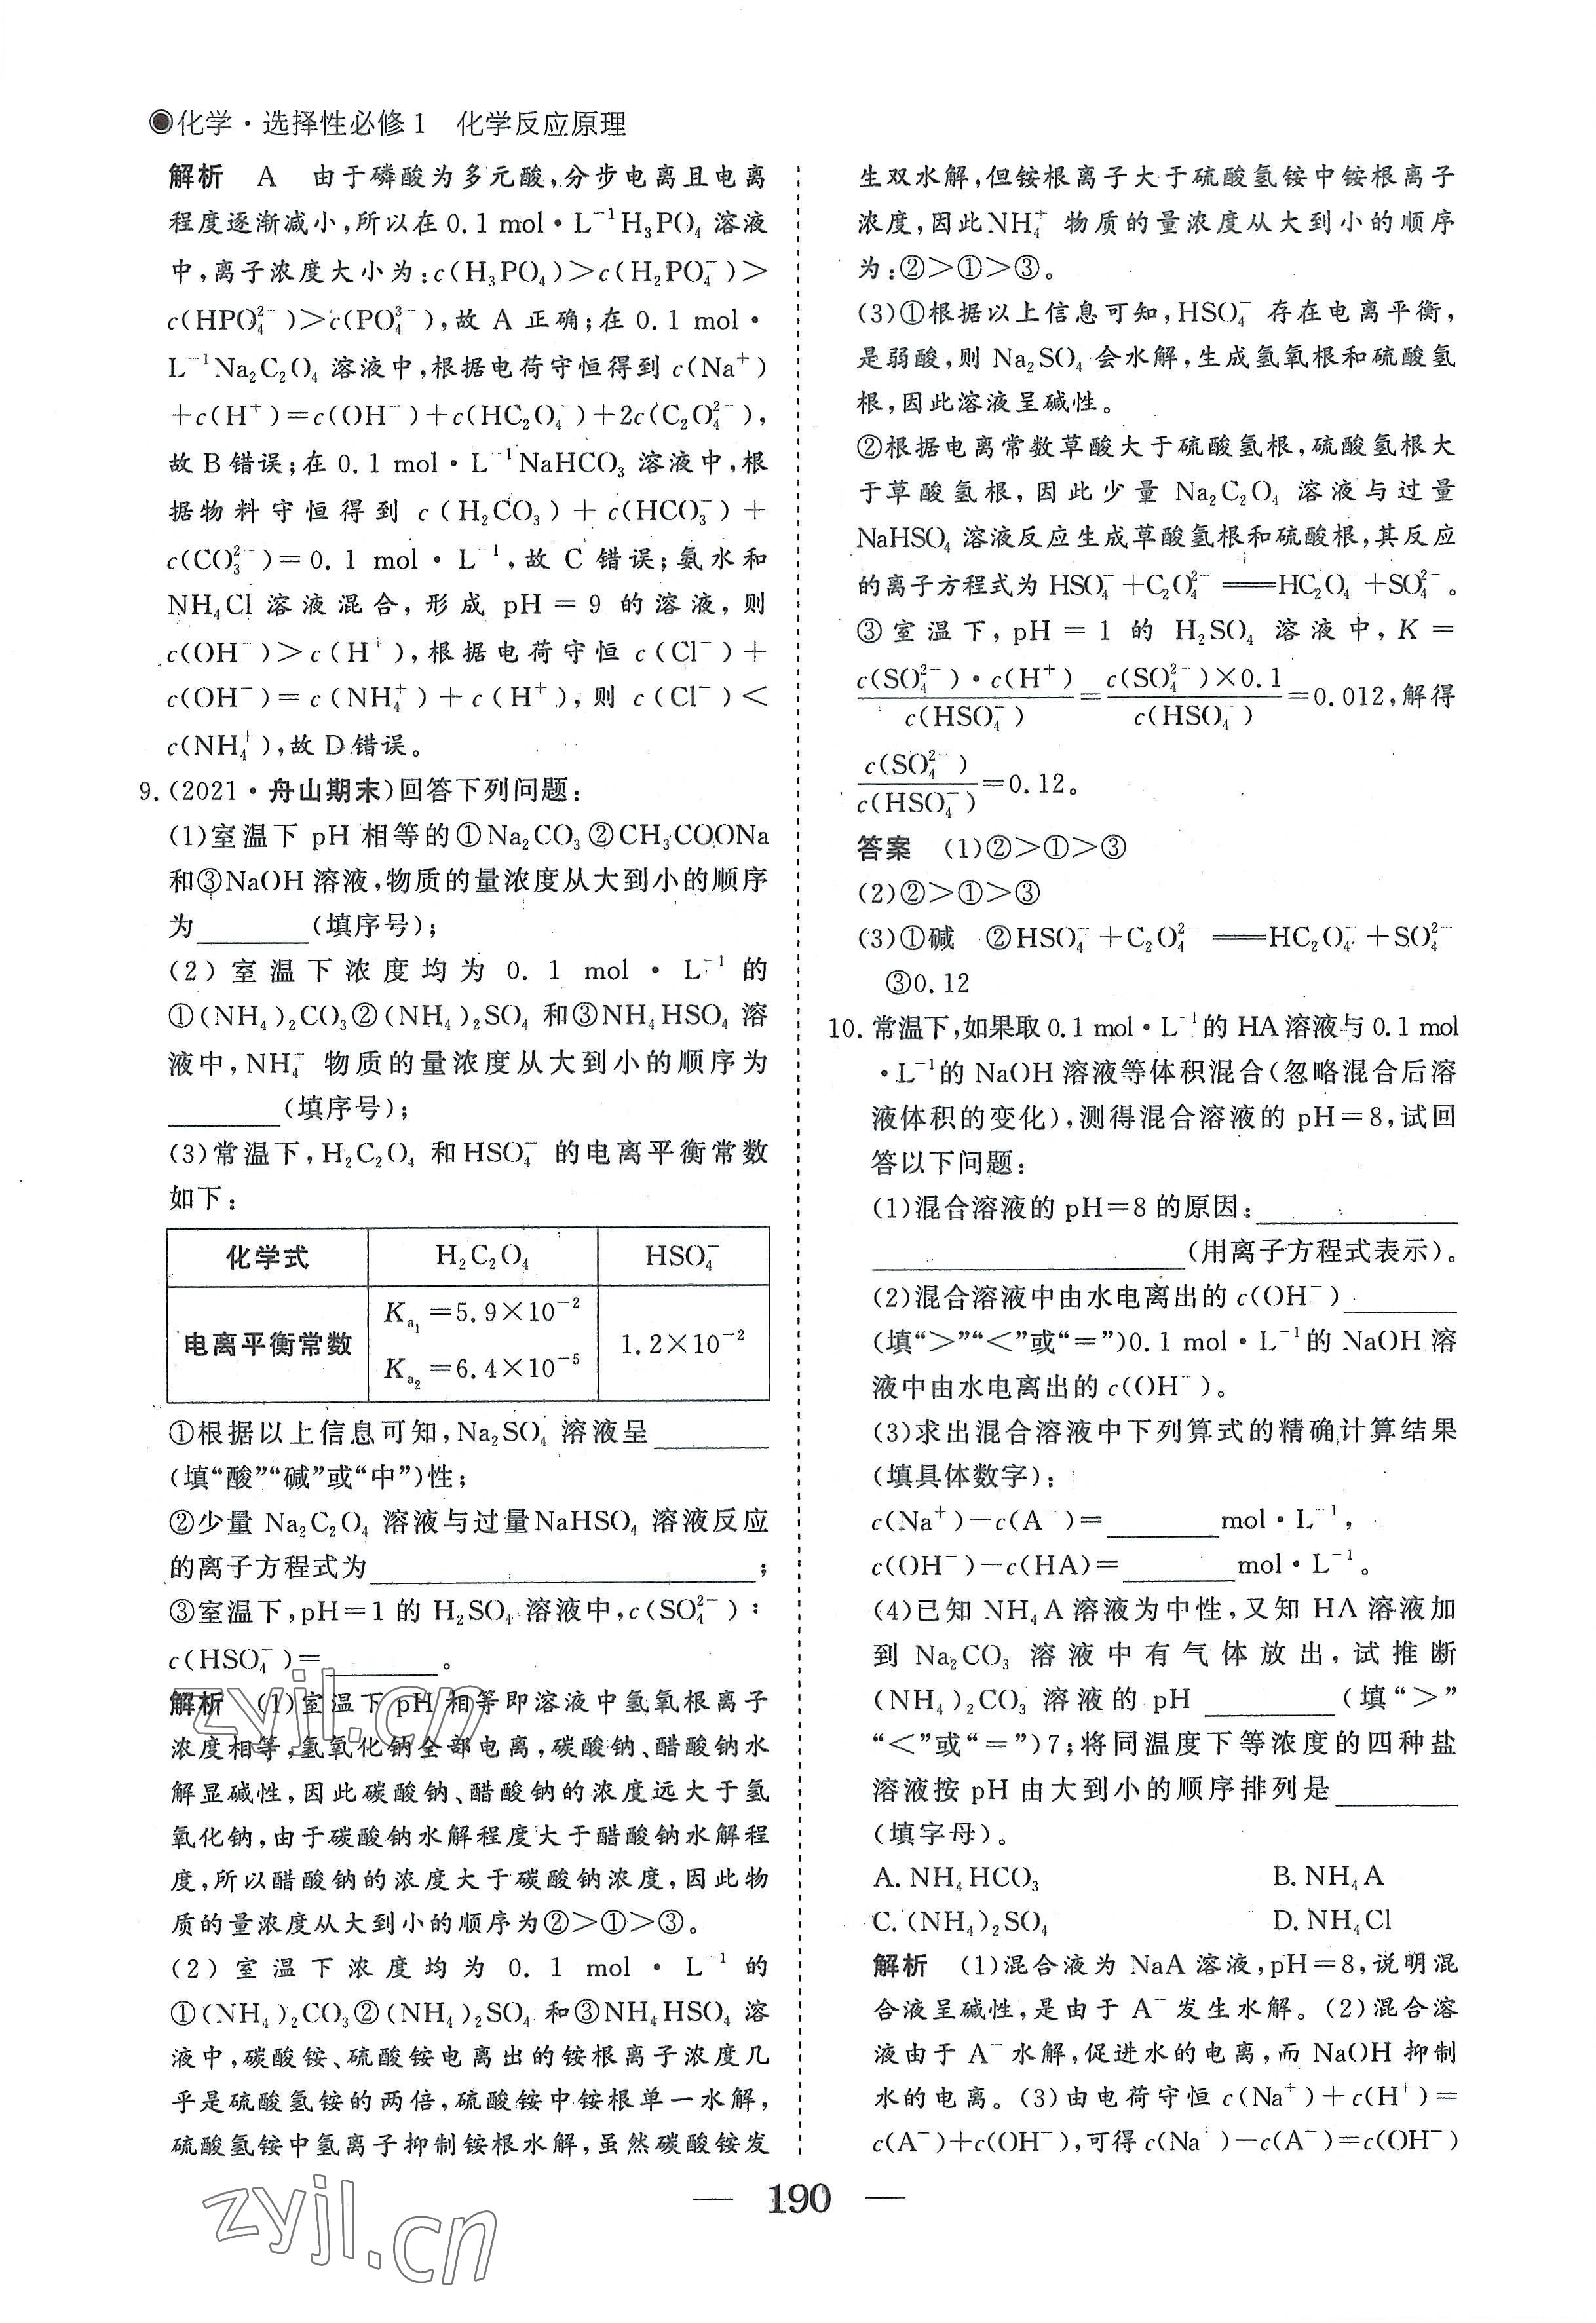 化学·选择性必修1 化学反应原理
解析 A 由于磷酸为多元酸,分步电离且电离
程度逐渐减小,所以在0.1 mol·L⁻¹H₃PO₄溶液
中,离子浓度大小为:c(H₃PO₄)>c(H₂PO₄⁻)>
c(HPO₄²⁻)>c(PO₄³⁻),故 A 正确;在 0.1 mol·
L⁻¹Na₂C₂O₄ 溶液中,根据电荷守恒得到 c(Na⁺)
+c(H⁺)=c(OH⁻)+c(HC₂O₄⁻)+2c(C₂O₄²⁻),
故B错误;在 0.1 mol·L⁻¹NaHCO₃ 溶液中,根
据物料守恒得到 c(H₂CO₃)+c(HCO₃⁻)+
c(CO₃²⁻)=0.1 mol·L⁻¹,故 C 错误;氨水和
NH₄Cl 溶液混合,形成 pH=9 的溶液,则
c(OH⁻)>c(H⁺),根据电荷守恒 c(Cl⁻)+
c(OH⁻)=c(NH₄⁺)+c(H⁺),则 c(Cl⁻)<
c(NH₄⁺),故D错误。
9.(2021·舟山期末)回答下列问题:
(1)室温下 pH 相等的①Na₂CO₃②CH₃COONa
和③NaOH溶液,物质的量浓度从大到小的顺序
为________(填序号);
(2)室温下浓度均为 0.1 mol·L⁻¹ 的
①(NH₄)₂CO₃②(NH₄)₂SO₄ 和③NH₄HSO₄ 溶
液中,NH₄⁺ 物质的量浓度从大到小的顺序为
________(填序号);
(3)常温下,H₂C₂O₄ 和HSO₄⁻ 的电离平衡常数
如下:
化学式 H₂C₂O₄ HSO₄⁻
电离平衡常数 Kₐ₁=5.9×10⁻² Kₐ₂=6.4×10⁻⁵ 1.2×10⁻²
①根据以上信息可知,Na₂SO₄ 溶液呈________
(填“酸”“碱”或“中”)性;
②少量 Na₂C₂O₄ 溶液与过量NaHSO₄ 溶液反应
的离子方程式为________________________;
③室温下,pH=1 的 H₂SO₄ 溶液中,c(SO₄²⁻):
c(HSO₄⁻)=________。
解析 (1)室温下 pH 相等即溶液中氢氧根离子
浓度相等,氢氧化钠全部电离,碳酸钠、醋酸钠水
解显碱性,因此碳酸钠、醋酸钠的浓度远大于氢
氧化钠,由于碳酸钠水解程度大于醋酸钠水解程
度,所以醋酸钠的浓度大于碳酸钠浓度,因此物
质的量浓度从大到小的顺序为②>①>③。
(2)室温下浓度均为 0.1 mol·L⁻¹ 的
①(NH₄)₂CO₃②(NH₄)₂SO₄ 和③NH₄HSO₄ 溶
液中,碳酸铵、硫酸铵电离出的铵根离子浓度几
乎是硫酸氢铵的两倍,硫酸铵中铵根单一水解,
硫酸氢铵中氢离子抑制铵根水解,虽然碳酸铵发
生双水解,但铵根离子大于硫酸氢铵中铵根离子
浓度,因此NH₄⁺ 物质的量浓度从大到小的顺序
为:②>①>③。
(3)①根据以上信息可知,HSO₄⁻ 存在电离平衡,
是弱酸,则 Na₂SO₄ 会水解,生成氢氧根和硫酸氢
根,因此溶液呈碱性。
②根据电离常数草酸大于硫酸氢根,硫酸氢根大
于草酸氢根,因此少量 Na₂C₂O₄ 溶液与过量
NaHSO₄ 溶液反应生成草酸氢根和硫酸根,其反应
的离子方程式为 HSO₄⁻+C₂O₄²⁻══HC₂O₄⁻+SO₄²⁻。
③室温下,pH=1 的 H₂SO₄ 溶液中,K=
c(SO₄²⁻)·c(H⁺)/c(HSO₄⁻)=c(SO₄²⁻)×0.1/c(HSO₄⁻)=0.012,解得
c(SO₄²⁻)/c(HSO₄⁻)=0.12。
答案 (1)②>①>③
(2)②>①>③
(3)①碱 ②HSO₄⁻+C₂O₄²⁻══HC₂O₄⁻+SO₄²⁻
③0.12
10.常温下,如果取0.1 mol·L⁻¹的 HA溶液与0.1 mol
·L⁻¹的 NaOH溶液等体积混合(忽略混合后溶
液体积的变化),测得混合溶液的 pH=8,试回
答以下问题:
(1)混合溶液的 pH=8 的原因:____________
____________________(用离子方程式表示)。
(2)混合溶液中由水电离出的 c(OH⁻)________
(填“>”“<”或“=”)0.1 mol·L⁻¹的 NaOH 溶
液中由水电离出的 c(OH⁻)。
(3)求出混合溶液中下列算式的精确计算结果
(填具体数字):
c(Na⁺)-c(A⁻)=________mol·L⁻¹,
c(OH⁻)-c(HA)=________mol·L⁻¹。
(4)已知 NH₄A溶液为中性,又知 HA 溶液加
到 Na₂CO₃ 溶液中有气体放出,试推断
(NH₄)₂CO₃ 溶液的 pH ________(填“>”
“<”或“=”)7;将同温度下等浓度的四种盐
溶液按 pH 由大到小的顺序排列是________
(填字母)。
A.NH₄HCO₃ B.NH₄A
C.(NH₄)₂SO₄ D.NH₄Cl
解析 (1)混合液为 NaA 溶液,pH=8,说明混
合液呈碱性,是由于 A⁻ 发生水解。(2)混合溶
液由于 A⁻ 水解,促进水的电离,而 NaOH 抑制
水的电离。(3)由电荷守恒 c(Na⁺)+c(H⁺)=
c(A⁻)+c(OH⁻),可得c(Na⁺)-c(A⁻)=c(OH⁻)
— 190 —
zyjl.cn
zyjl.cn